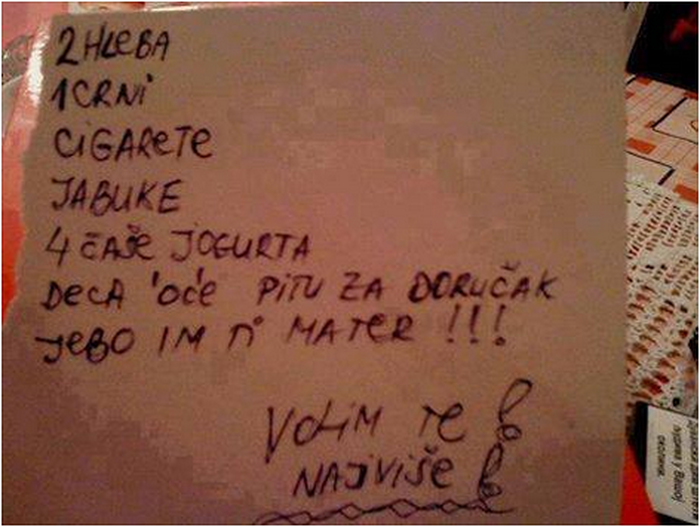 2 HLEBA
1 CRNI
CIGARETE
JABUKE
4 ČAŠE JOGURTA
DECA 'OĆE PITU ZA DORUČAK
JEBO IM n° MATER !!!
VOLIM TE
NAJVIŠE
људима у Вашој
околини.